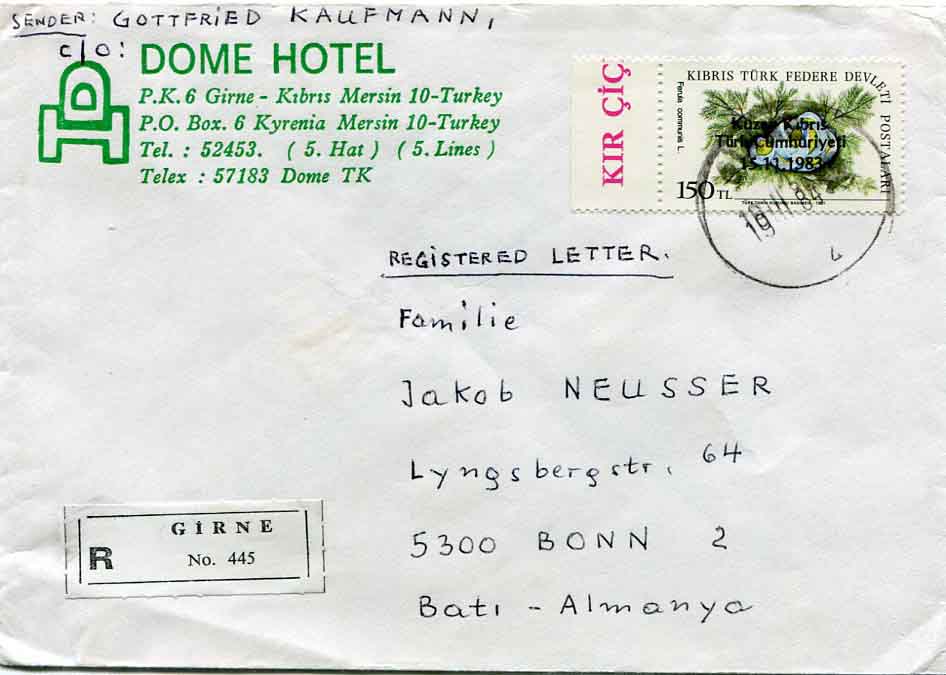 SENDER: GOTTFRIED KAUFMANN,
c/o:
DOME HOTEL
P.K. 6 Girne - Kıbrıs Mersin 10-Turkey
P.O. Box. 6 Kyrenia Mersin 10-Turkey
Tel. : 52453. ( 5. Hat ) ( 5. Lines )
Telex : 57183 Dome TK
KIR ÇİÇ
Ferula communis L.
KIBRIS TÜRK FEDERE DEVLETİ POSTALARI
Kuzey Kıbrıs
Türk Cumhuriyeti
15.11.1983
150 TL
REGISTERED LETTER.
Familie
Jakob NEUSSER
Lyngsbergstr. 64
5300 BONN 2
Batı - Almanya
GİRNE
R No. 445